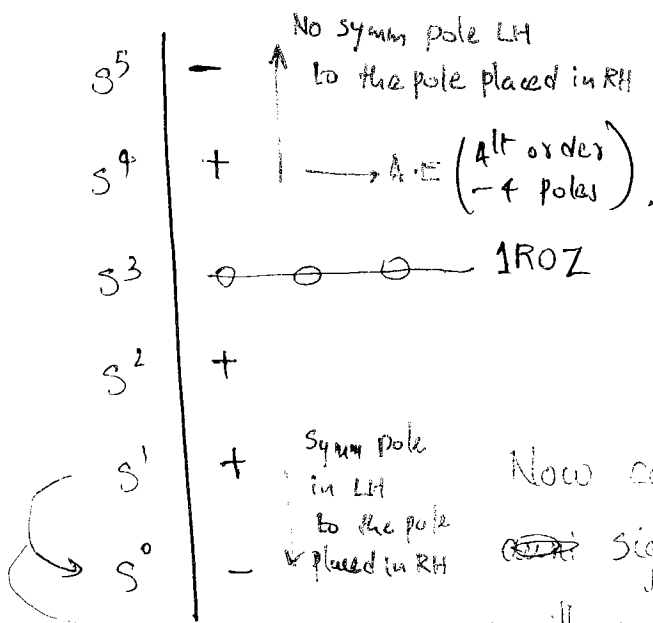 No symm pole LH
to the pole placed in RH
S⁵ -
S⁴ + → A.E (4th order
- 4 poles)
S³ 0 0 0 1ROZ
S² +
S¹ +
Symm pole
in LH
to the pole
placed in RH
Now
S⁰ -